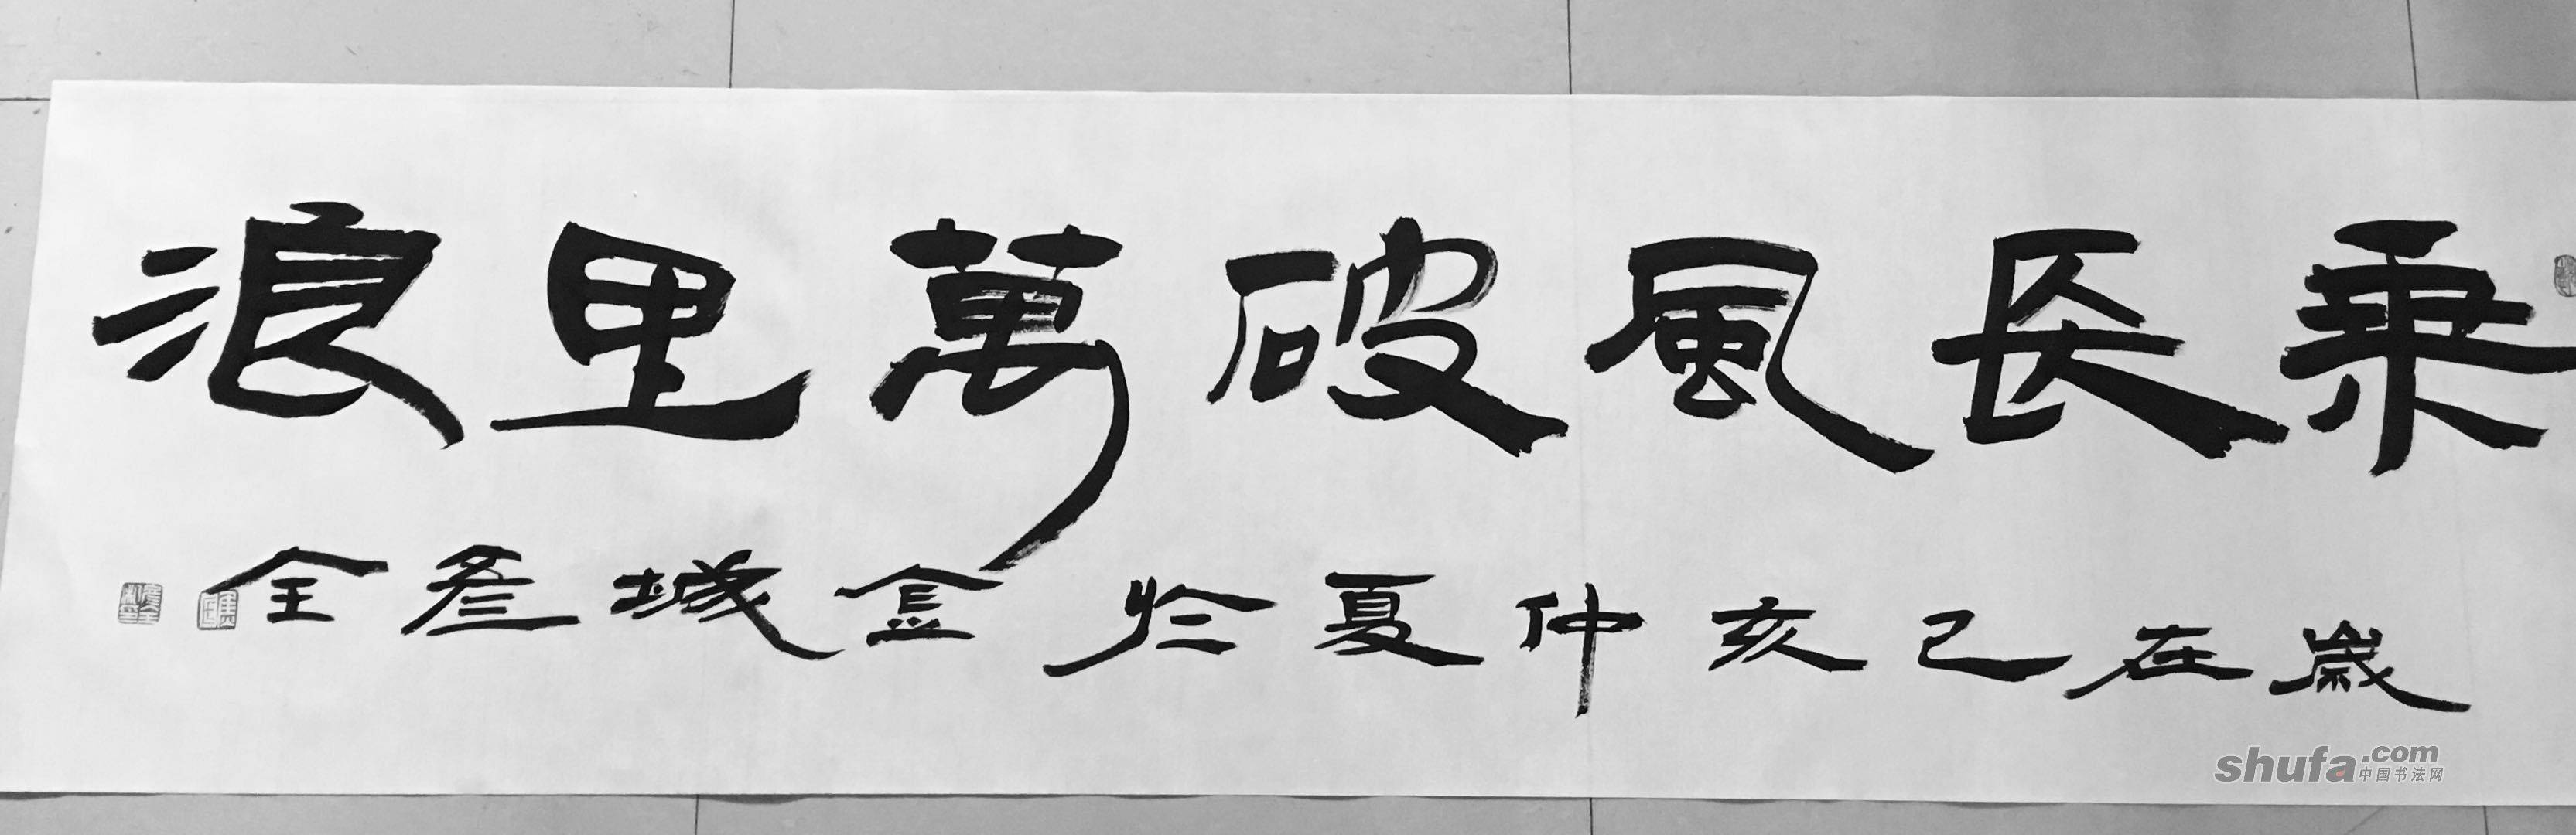 乘長風破萬里浪
歲在己亥仲夏於金城彥全
shufa.com
中国书法网